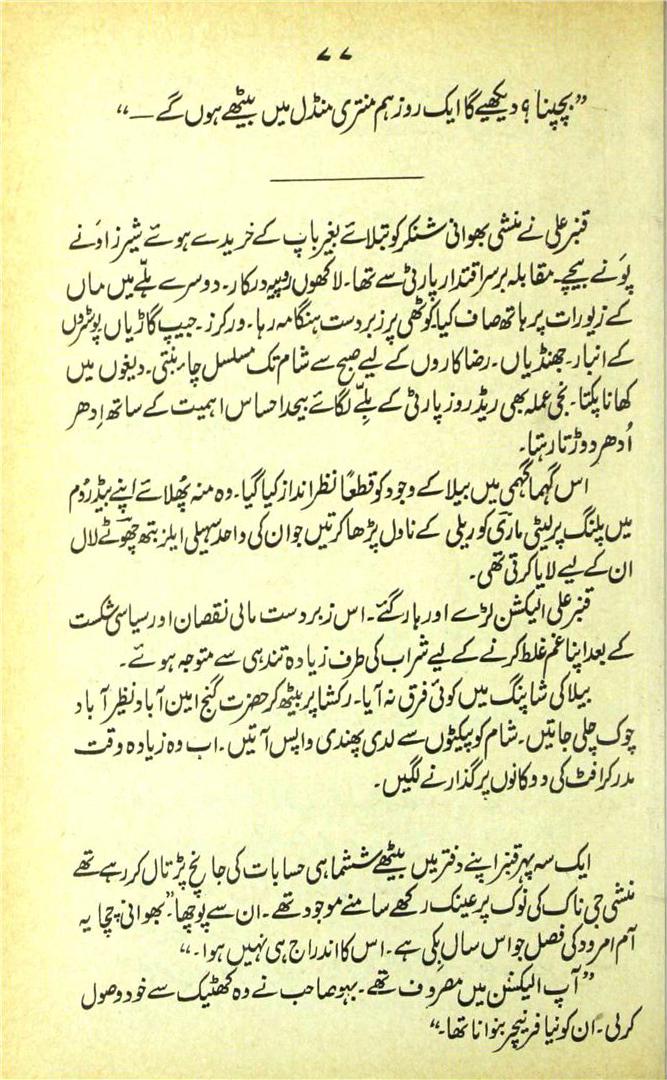 ۷۷
”بچپنا؟ دیکھیے گا ایک روز ہم منتری منڈل میں بیٹھے ہوں گے —“
قنبر علی نے منشی بھوانی شنکر کو بتلائے بغیر باپ کے خریدے ہوئے شیرز اونے
پونے بیچے۔ مقابلہ برسر اقتدار پارٹی سے تھا۔ لاکھوں روپیہ درکار۔ دوسرے ہلّے میں ماں
کے زیورات پر ہاتھ صاف کیا کوٹھی پر زبردست ہنگامہ رہا۔ ورکرز۔ جیپ گاڑیاں پوسٹروں
کے انبار۔ جھنڈیاں۔ رضاکاروں کے لیے صبح سے شام تک مسلسل چاء بنتی۔ دیغوں میں
کھانا پکتا۔ نجی عملہ بھی ریڈ روز پارٹی کے بلّے لگائے بیحد احساس اہمیت کے ساتھ اِدھر
اُدھر دوڑتا رہتا۔
اس گہما گہمی میں بیلا کے وجود کو قطعاً نظر انداز کیا گیا۔ وہ منہ پُھلائے اپنے بیڈ روم
میں پلنگ پر لیٹی ماری کوریلی کے ناول پڑھا کرتیں جو ان کی واحد سہیلی ایلزبتھ چھوٹے لال
ان کے لیے لایا کرتی تھی۔
قنبر علی الیکشن لڑے اور ہار گئے۔ اس زبردست مالی نقصان اور سیاسی شکست
کے بعد اپنا غم غلط کرنے کے لیے شراب کی طرف زیادہ تندہی سے متوجہ ہوئے۔
بیلا کی شاپنگ میں کوئی فرق نہ آیا۔ رکشا پر بیٹھ کر حضرت گنج امین آباد نظیر آباد
چوک چلی جاتیں۔ شام کو پیکٹوں سے لدی پھندی واپس آتیں۔ اب وہ زیادہ وقت
مدر کرافٹ کی دوکانوں پر گذارنے لگیں۔
ایک سہ پہر قنبر اپنے دفتر میں بیٹھے ششماہی حسابات کی جانچ پڑتال کر رہے تھے
منشی جی ناک کی نوک پر عینک رکھے سامنے موجود تھے۔ ان سے پوچھا۔ ”بھوانی چچا یہ
آم امرود کی فصل جو اس سال بِکی ہے۔ اس کا اندراج ہی نہیں ہوا۔“
”آپ الیکشن میں مصروف تھے۔ بہو صاحب نے وہ کھٹیک سے خود وصول
کر لی۔ ان کو نیا فرنیچر بنوانا تھا۔“